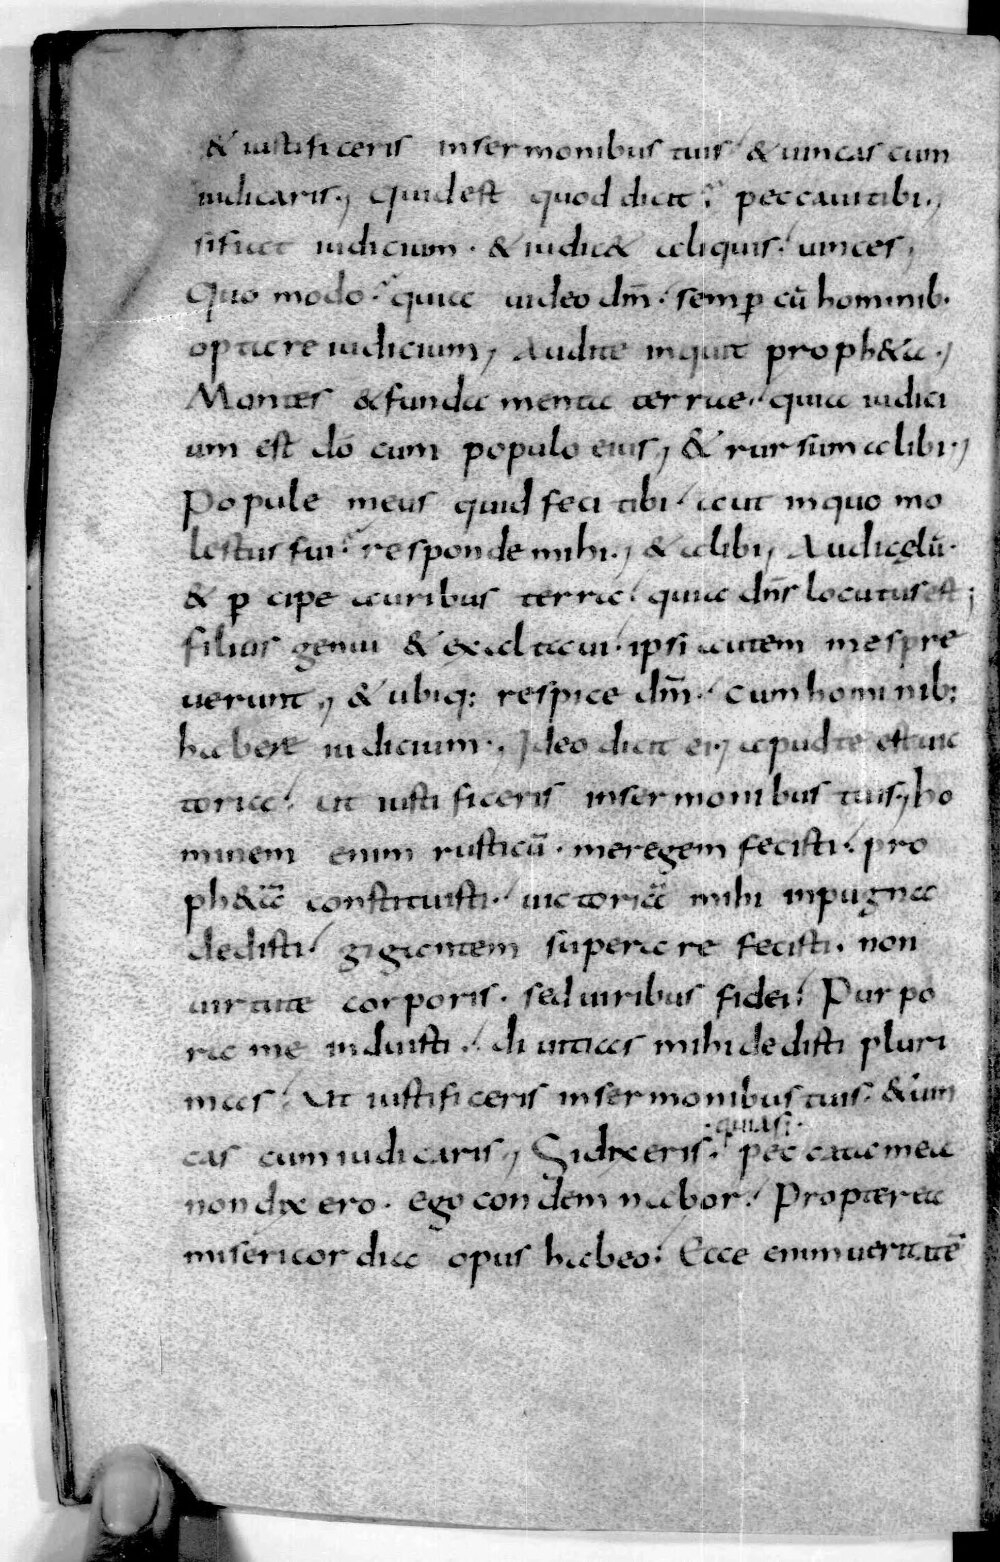 & iustificeris insermonibus tuis & uincas cum
iudicaris., Quidest quod dicit; peccauitibi.,
sifuat iudicium. & iudic& aliquis. uinces,
Quo modo. quia uideo dm̄. semp̲ cū hominib.
optare iudicium, Audite inquit proph&a.,
Montes & fundamenta terrae. quia iudici
um est dō cum populo eius, & rursum alibi.,
Popule meus quid feci tibi. aut inquo mo
lestus fui. responde mihi., & alibi, Audicęlū.
& p̲cipe auribus terra. quia dn̄s locutus est;
filios genui & exaltaui. ipsi autem mespre
uerunt., & ubiq: respice dm̄. cum hominib:
habere iudicium., Ideo dicit ei, apud te est uic
toria. Ut iustificeris insermonibus tuis, ho
minem enim rusticū. meregem fecisti. pro
ph&ā constituisti. uictoriā mihi inpugna
dedisti. gigantem superare fecisti. non
uirtute corporis. sed uiribus fidei. Purpo
ra me induisti. diuitias mihi dedisti pluri
mas. Ut iustificeris insermonibus tuis. & uin
·quiasi·
cas cum iudicaris., Sidixeris. peccata mea
non dixero. ego condemnabor. Propterea
misericordia opus habeo: Ecce enim ueritatē